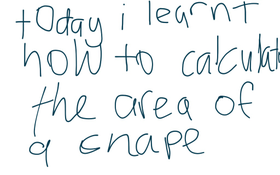 today i learnt
how to calculate
the area of
a shape